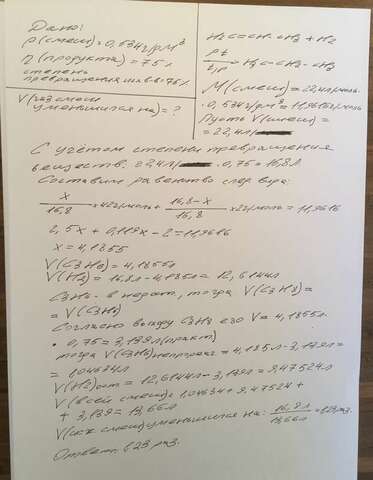 Дано:
ρ(смеси)=0,534г/дм³
η(продукта)=75%
степень
превращения исх.в-в=75%
V(газ.смеси
уменьшился на)=?
H₂C=CH-CH₃ + H₂
Pt
t,p → H₃C-CH₂-CH₃
M(смеси)=22,4л/моль
·0,534г/дм³=11,9616г/моль
Пусть V(смеси)=
=22,4л/
С учётом степени превращения
веществ: 22,4л/ ·0,75=16,8л
Составим равенство след. вида:
x/16,8 ·42г/моль + 16,8-x/16,8 ·2г/моль=11,9616
2,5x+0,119x-2=11,9616
x=4,1855
V(C₃H₆)=4,1855л
V(H₂)=16,8л-4,1855л=12,6144л
C₃H₆- в недост., тогда V(C₃H₆)=
=V(C₃H₈)
Согласно выходу C₃H₈ его V=4,1855л·
·0,75=3,139л(практ)
тогда V(C₃H₆)непрореаг=4,185л-3,139л=
=1,04634л
V(H₂)ост=12,6144л-3,139л=9,47524л
V(всей смеси)=1,04634+9,47524+
+3,139=13,66л
уменьшился на: 16,8л/13,66л=1,23раз.
Ответ: 1,23 раз.